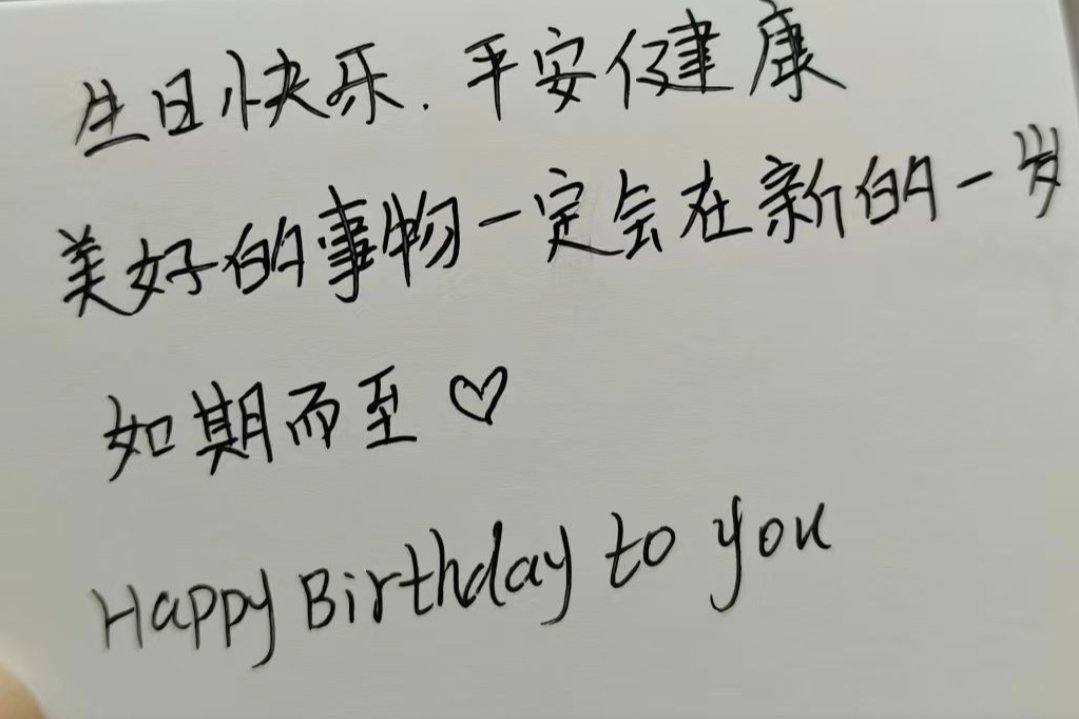 生日快乐.平安健康
美好的事物一定会在新的一岁
如期而至♡
Happy Birthday to you